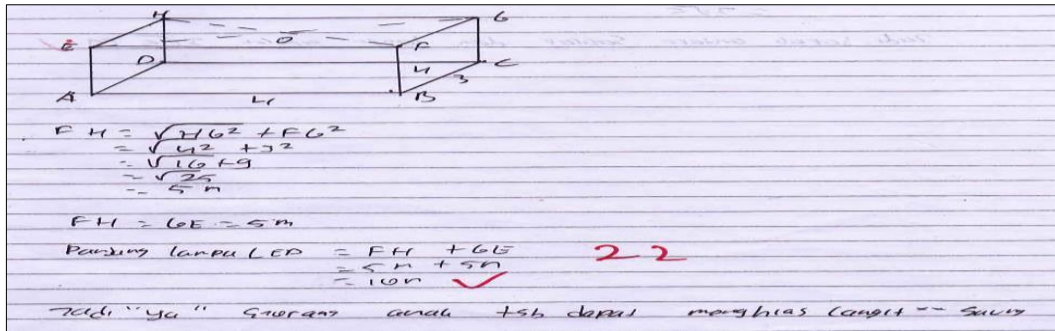 H G
E O F
D 4 C
3
A 4 B
FH = √HG² + FG²
= √4² + 3²
= √16 + 9
= √25
= 5 m
FH = GE = 5m
Panjang lampu LED = FH + GE 22
= 5m + 5m
= 10m
Jadi "ya" seorang anak tsb dapat menghias langit --